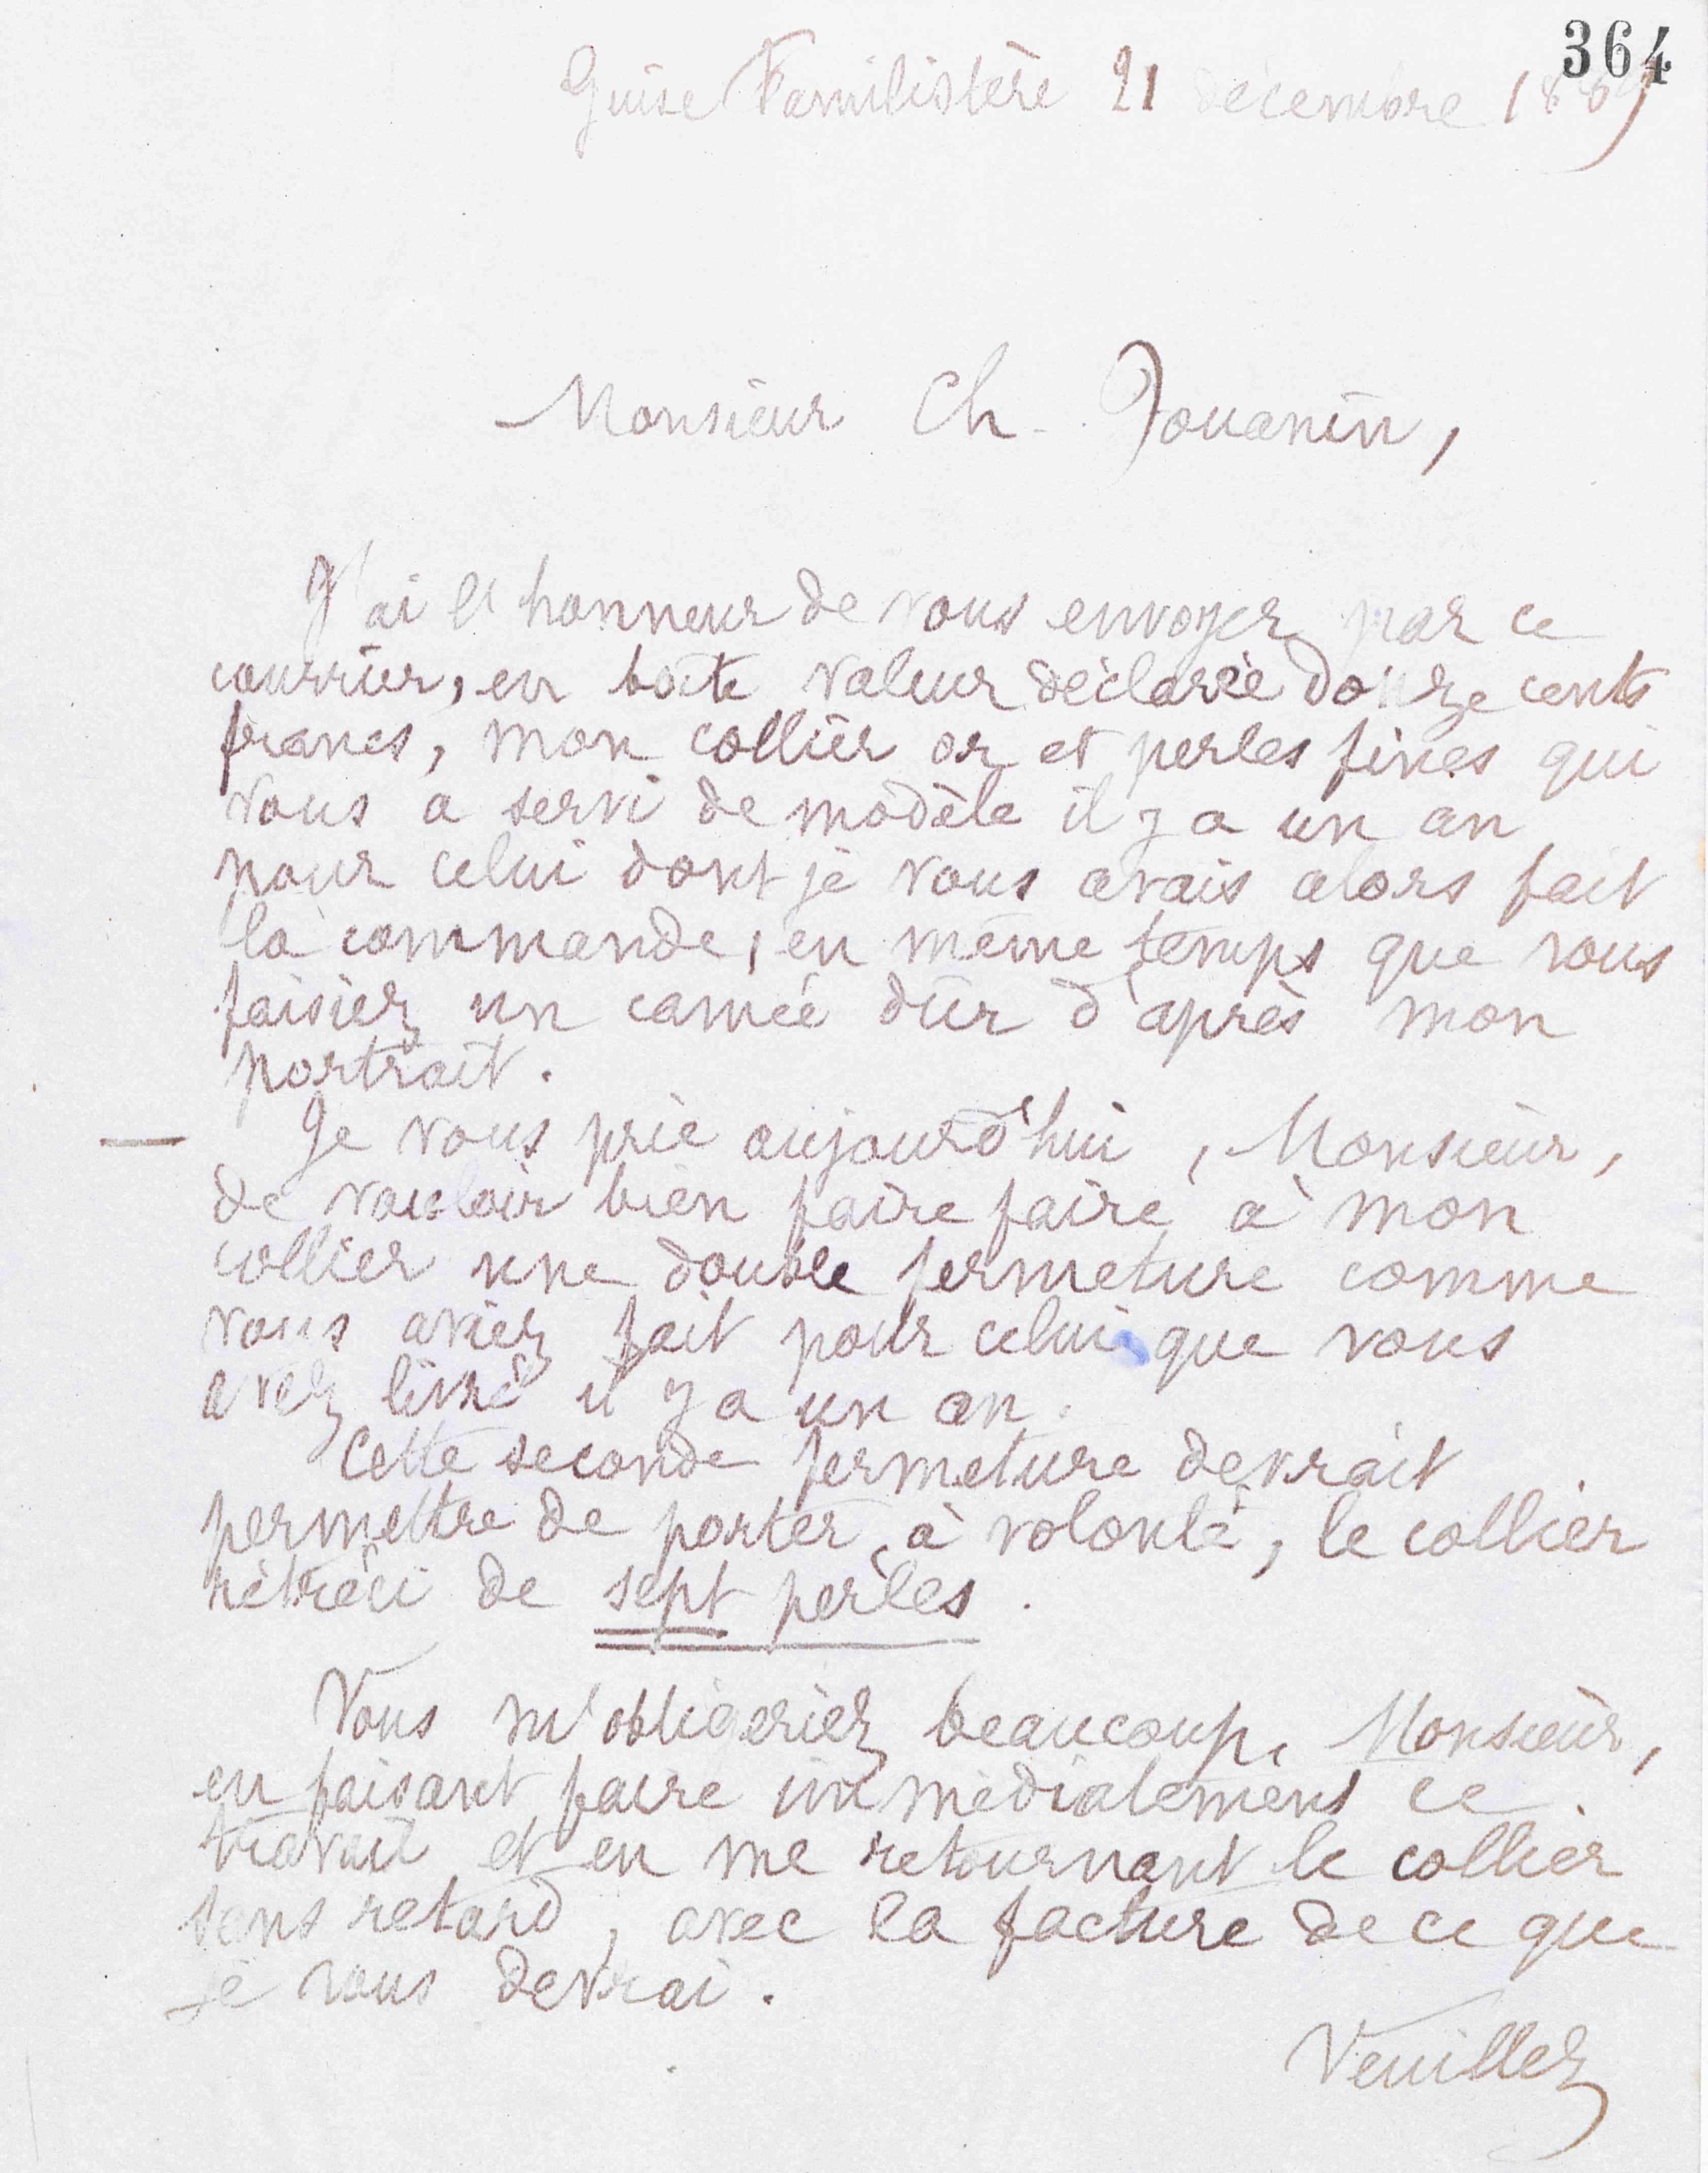 364
Guise Familistère 21 décembre 1889
Monsieur Ch. Jouanin,
J'ai l'honneur de vous envoyer par ce
courrier, en boîte valeur déclarée douze cents
francs, mon collier or et perles fines qui
vous a servi de modèle il y a un an
pour celui dont je vous avais alors fait
la commande, en même temps que vous
faisiez un camée dur d'après mon
portrait.
Je vous prie aujourd'hui, Monsieur,
de vouloir bien faire faire à mon
collier une double fermeture comme
vous aviez fait pour celui que vous
avez livré il y a un an.
Cette seconde fermeture devrait
permettre de porter, à volonté, le collier
rétréci de sept perles.
Vous m'obligeriez beaucoup, Monsieur,
en faisant faire immédiatement ce
travail et en me retournant le collier
sans retard, avec la facture de ce que
je vous devrai.
Veuillez